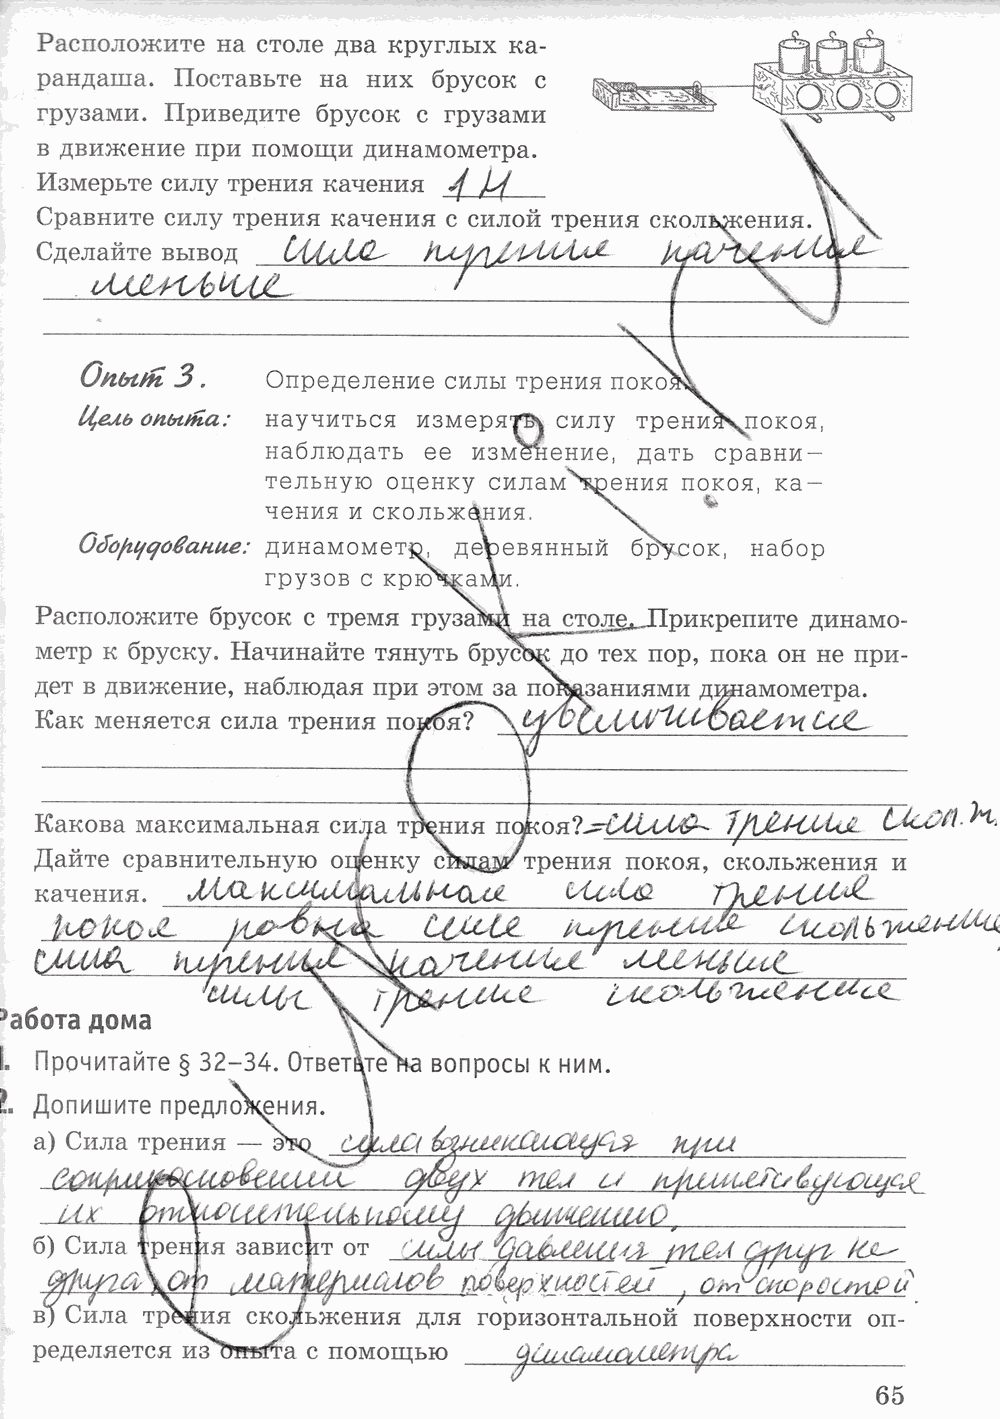 Расположите на столе два круглых ка-
рандаша. Поставьте на них брусок с
грузами. Приведите брусок с грузами
в движение при помощи динамометра.
Измерьте силу трения качения 1 Н
Сравните силу трения качения с силой трения скольжения.
Сделайте вывод сила трения качения
меньше
Опыт 3. Определение силы трения покоя.
Цель опыта: научиться измерять силу трения покоя,
наблюдать ее изменение, дать сравни-
тельную оценку силам трения покоя, ка-
чения и скольжения.
Оборудование: динамометр, деревянный брусок, набор
грузов с крючками.
Расположите брусок с тремя грузами на столе. Прикрепите динамо-
метр к бруску. Начинайте тянуть брусок до тех пор, пока он не при-
дет в движение, наблюдая при этом за показаниями динамометра.
Как меняется сила трения покоя? увеличивается
Какова максимальная сила трения покоя? =сила трения скол.ж.
Дайте сравнительную оценку силам трения покоя, скольжения и
качения. максимальная сила трения
покоя равна силе трения скольжения
сила трения качения меньше
силы трения скольжения
Работа дома
1. Прочитайте § 32–34. Ответьте на вопросы к ним.
2. Допишите предложения.
а) Сила трения — это сила возникающая при
соприкосновении двух тел и препятствующая
их относительному движению.
б) Сила трения зависит от силы давления тел друг на
друга, от материалов поверхностей, от скоростей.
в) Сила трения скольжения для горизонтальной поверхности оп-
ределяется из опыта с помощью динамометра
65